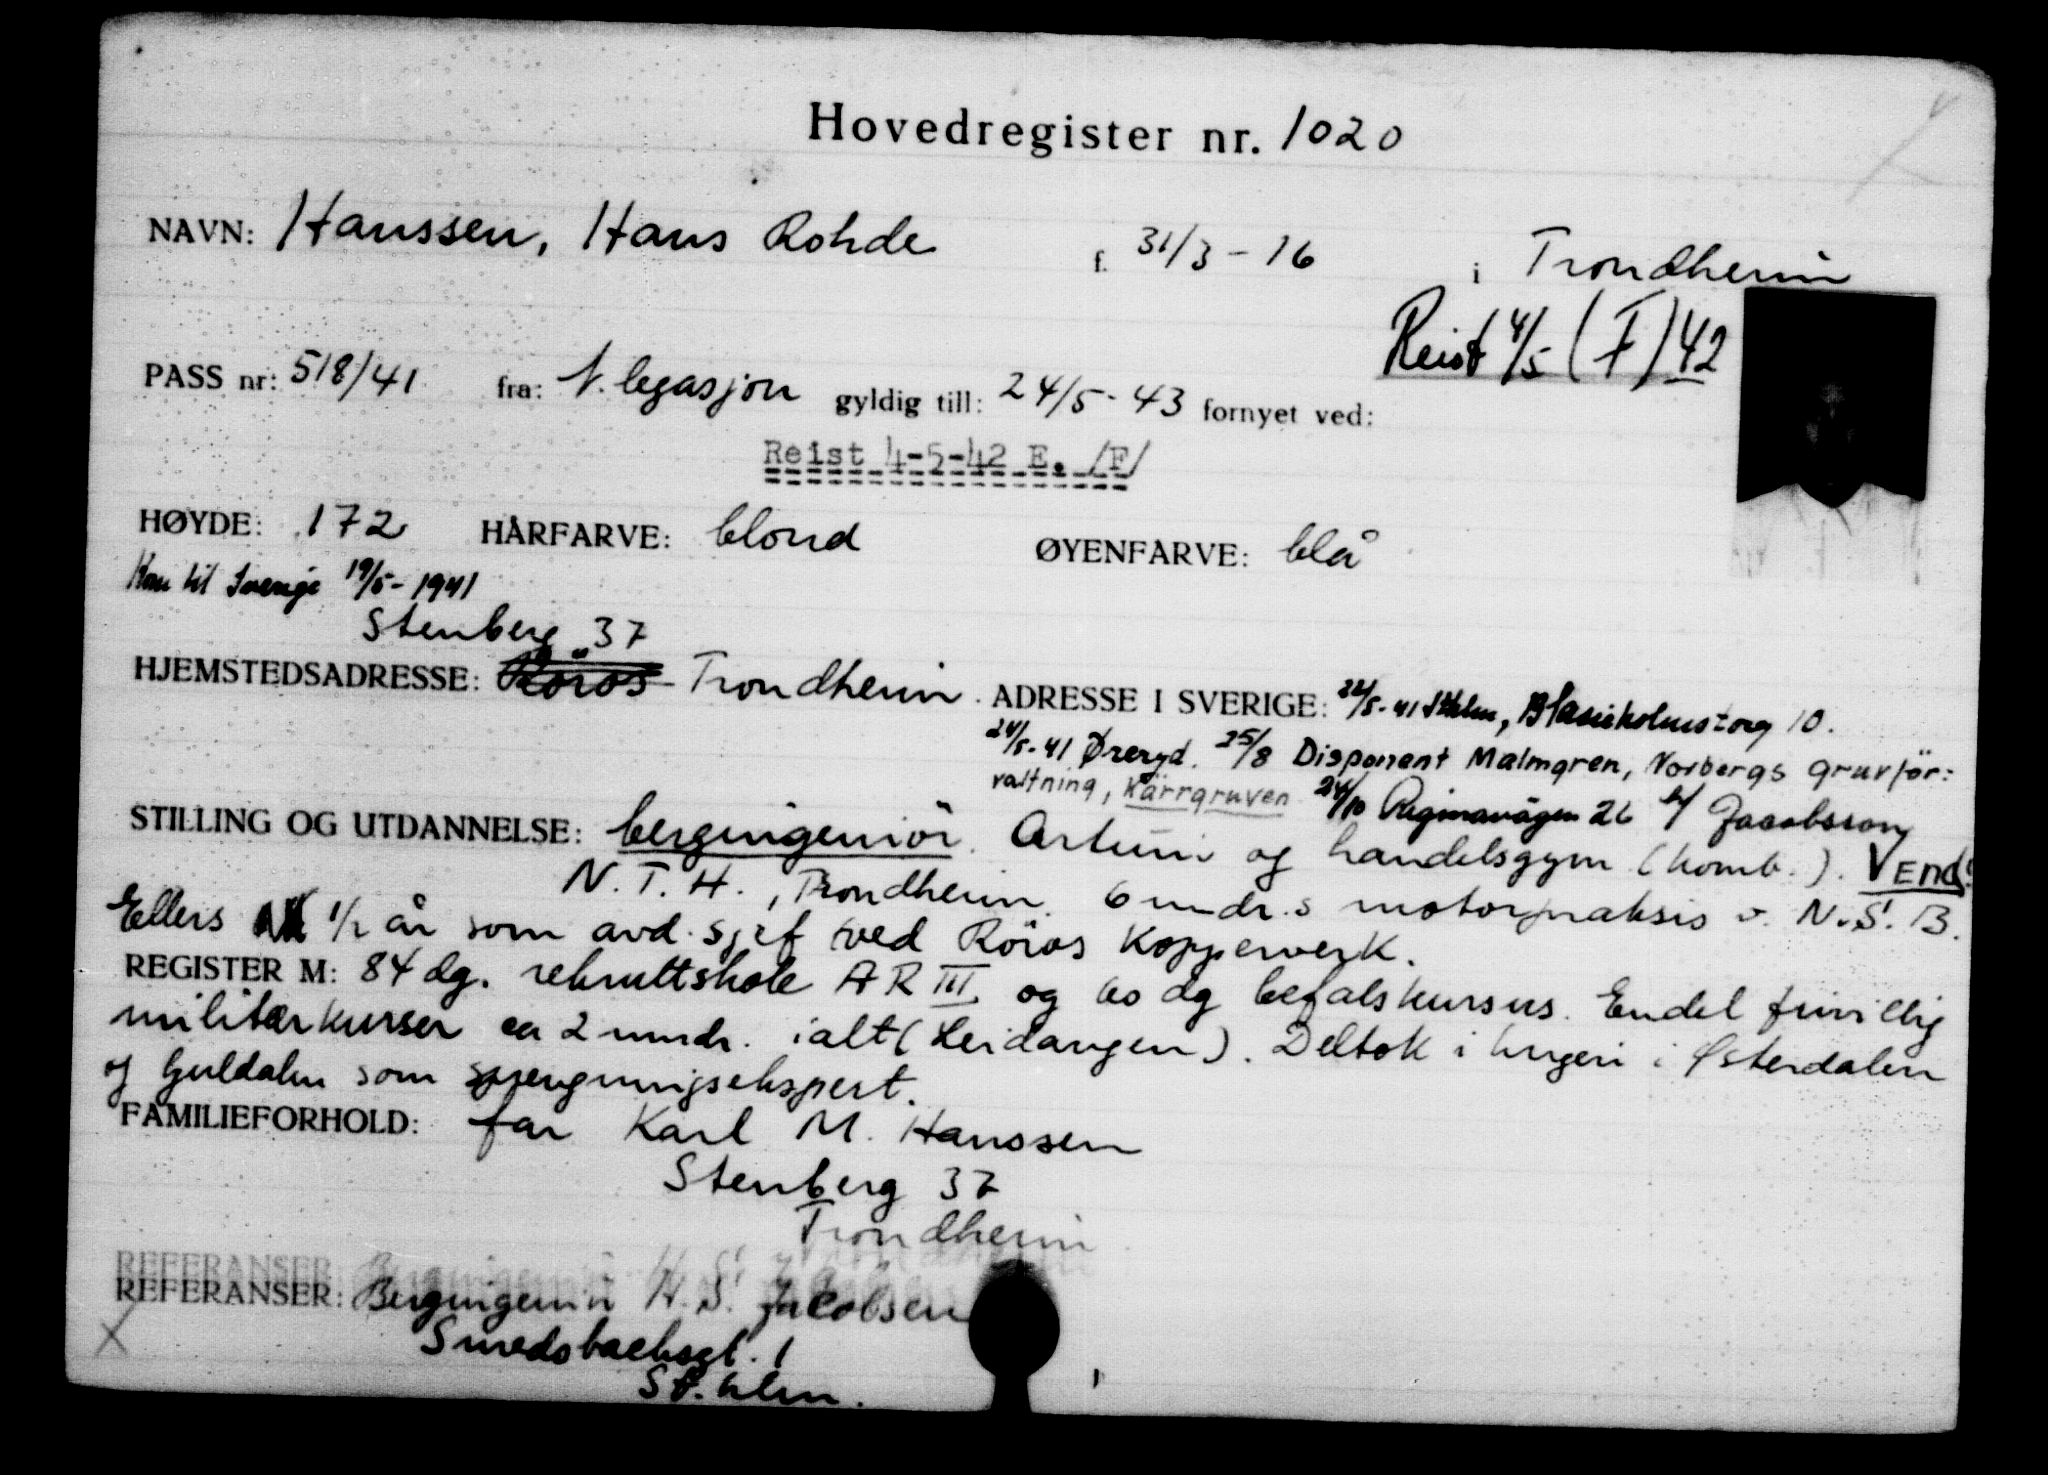 Hovedregister nr. 1020
NAVN: Hanssen, Hans Rohde f. 31/3 - 16 i Trondheim
Reist 4/5 (F) 42
PASS nr: 518/41 fra: N. legasjon gyldig till: 24/5 - 43 fornyet ved:
Reist 4-5-42 E. /F/
HØYDE: 172 HÅRFARVE: blond ØYENFARVE: blå
Kom til Sverige 19/5 - 1941
Stenberg 37
HJEMSTEDSADRESSE: Röros Trondheim. ADRESSE I SVERIGE: 22/5-41 Sthlm, Blasieholmstorg 10.
24/5-41 Øreryd. 25/8 Disponent Malmgren, Norbergs gruvför:
valtning, Kärrgruven 24/10 Reginavägen 26 b/ Jacobsson
STILLING OG UTDANNELSE: bergingeniör. Artium og handelsgym (komb.). VEND!
N.T.H., Trondheim. 6 mndr.s motorpraksis v. N.S.B.
Ellers 1/2 år som avd. sjef ved Röros Kopperverk.
REGISTER M: 84 dg. rekruttskole AR III og 60 dg befalskursus. Endel frivillig
militærkurser ca 2 mndr. ialt (Leidangen). Deltok i krigen i Østerdalen
og Guldalen som sprengningsekspert.
FAMILIEFORHOLD: far Karl M. Hanssen
Stenberg 37
Trondheim
REFERANSER: Bergingeniör H.S. Jacobsen
Smedsbacksgt. 1
St.hlm.